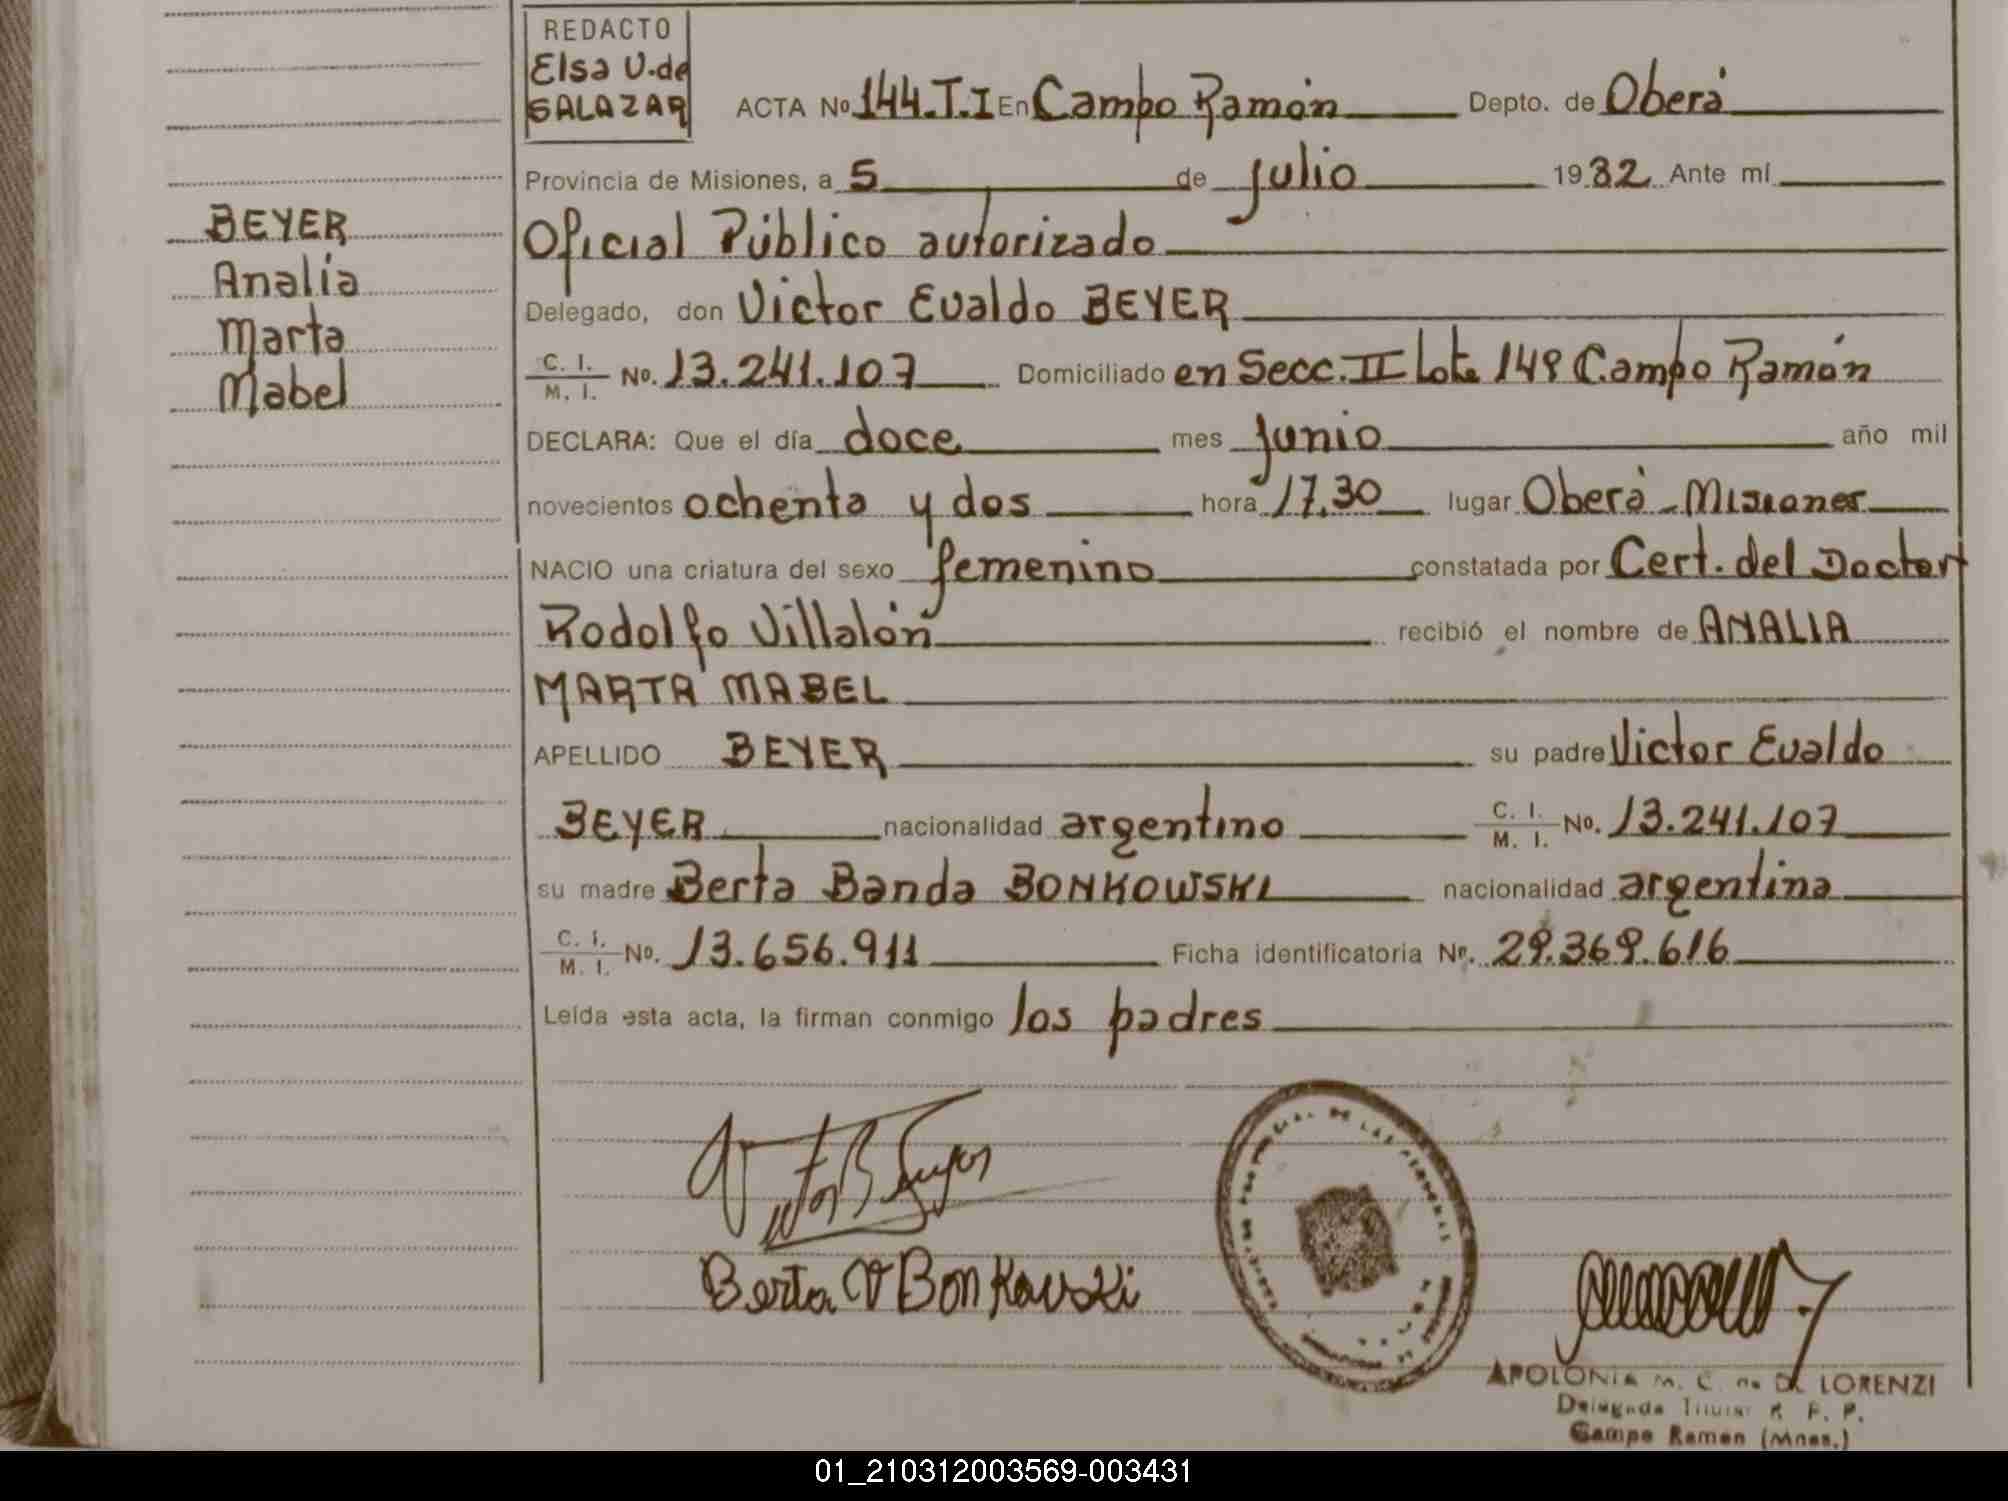 REDACTO
Elsa V. de
SALAZAR
BEYER
Analía
Marta
Mabel
ACTA No. 144.T.I En Campo Ramón Depto. de Oberá
Provincia de Misiones, a 5 de julio 1982 Ante mí
Oficial Público autorizado
Delegado, don Victor Evaldo BEYER
C. I. / M. I. No. 13.241.107 Domiciliado en Secc. II Lote 149 Campo Ramón
DECLARA: Que el día doce mes junio año mil
novecientos ochenta y dos hora 17.30 lugar Oberá - Misiones
NACIO una criatura del sexo femenino constatada por Cert. del Doctor
Rodolfo Villalón recibió el nombre de ANALIA
MARTA MABEL
APELLIDO BEYER su padre Victor Evaldo
BEYER nacionalidad argentino C. I. / M. I. No. 13.241.107
su madre Berta Banda BONKOWSKI nacionalidad argentina
C. I. / M. I. No. 13.656.911 Ficha identificatoria Nº. 29.369.616
Leída esta acta, la firman conmigo los padres
Berta V Bonkowski
APOLONIA M. C. de DE LORENZI
Delegada Titular R. P. P.
Campo Ramon (Mnes.)
01_210312003569-003431